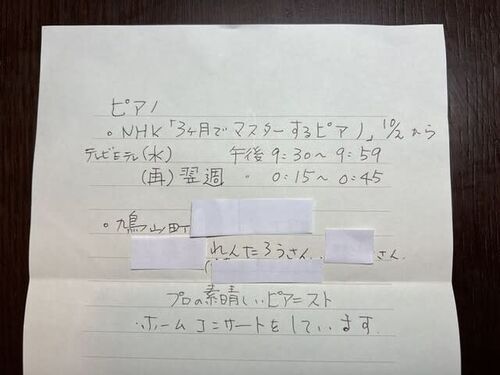 ピアノ
・NHK「3ヶ月でマスターするピアノ」10/2から
テレビEテレ(水) 午後9:30〜9:59
(再)翌週 〃 0:15〜0:45
・鳩山町
れんたろうさん、 さん
プロの素晴しいピアニスト
ホームコンサートをしています